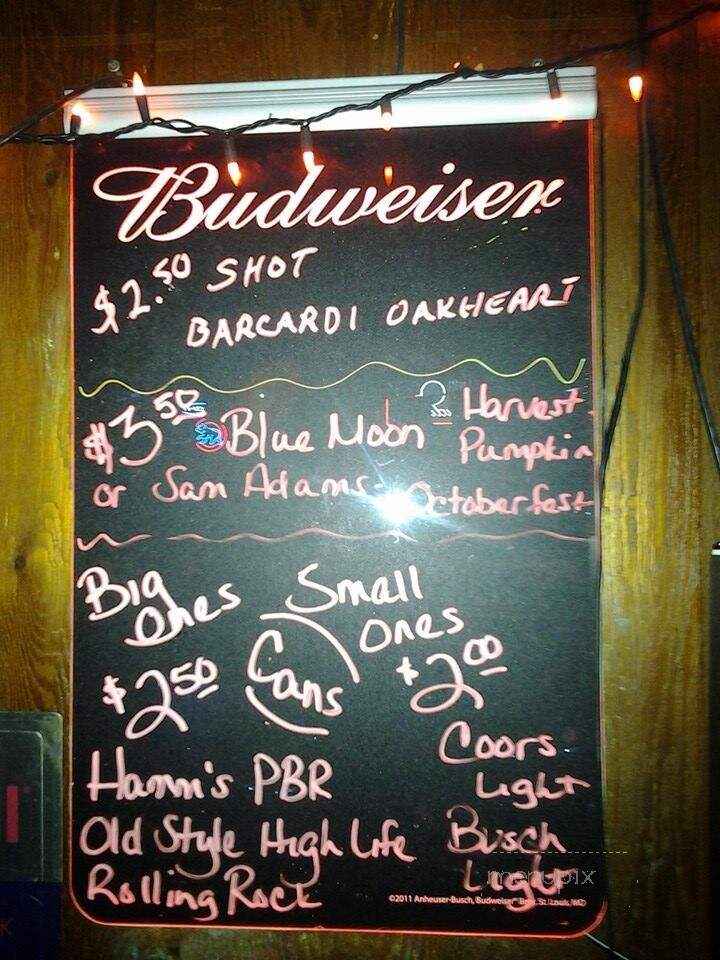 Budweiser
$2.50 SHOT
BARCARDI OAKHEART
$3.50 Blue Moon - Harvest
Pumpkin
or Sam Adams - Octoberfest
Big Ones
Small Ones
Cans
$2.50
$2.00
Hamm's PBR
Old Style High Life
Rolling Rock
Coors
Light
Busch
Light
menupix
©2011 Anheuser-Busch, Budweiser® Beer, St. Louis, MO